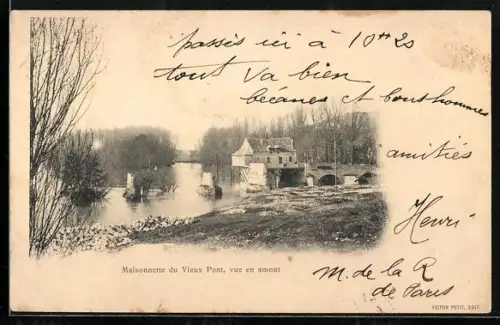 passés ici à 10 h 20
tout va bien
bécanes et bonshommes
amitiés
Henri
M. de la R
de Paris
Maisonnette du Vieux Pont, vue en amont
VICTOR PETIT, EDIT.